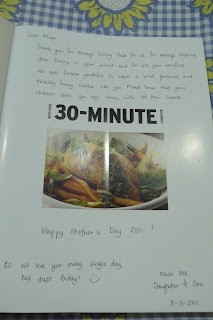 Dear Mum
Thank you for always being there for us, for always keeping
your family in your mind and for all your sacrifices
we are forever grateful to have a kind, generous and
amazing loving mother like you. Please know that your
children love you very much with all their hearts.
30-MINUTE
Happy Mother's Day 2011 !
Ps we love you every single day
Not just today!
Much love,
Daughter & Son
8-5-2011